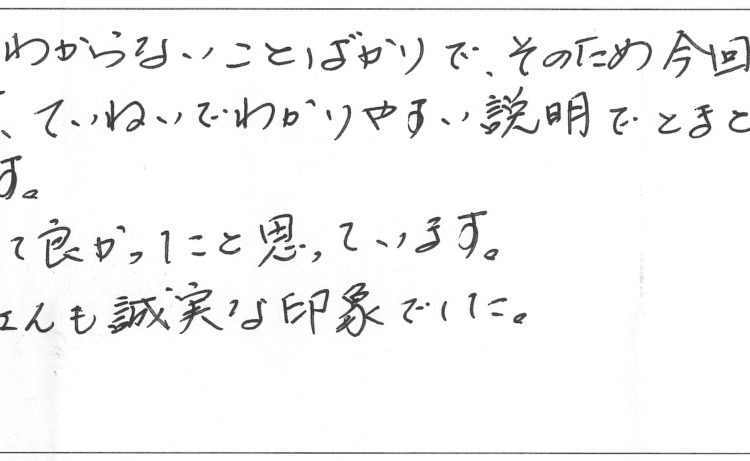 わからないことばかりで、そのため今回
、ていねいでわかりやすい説明でとまと
す。
て良かったこと思っています。
さんも誠実な印象でした。